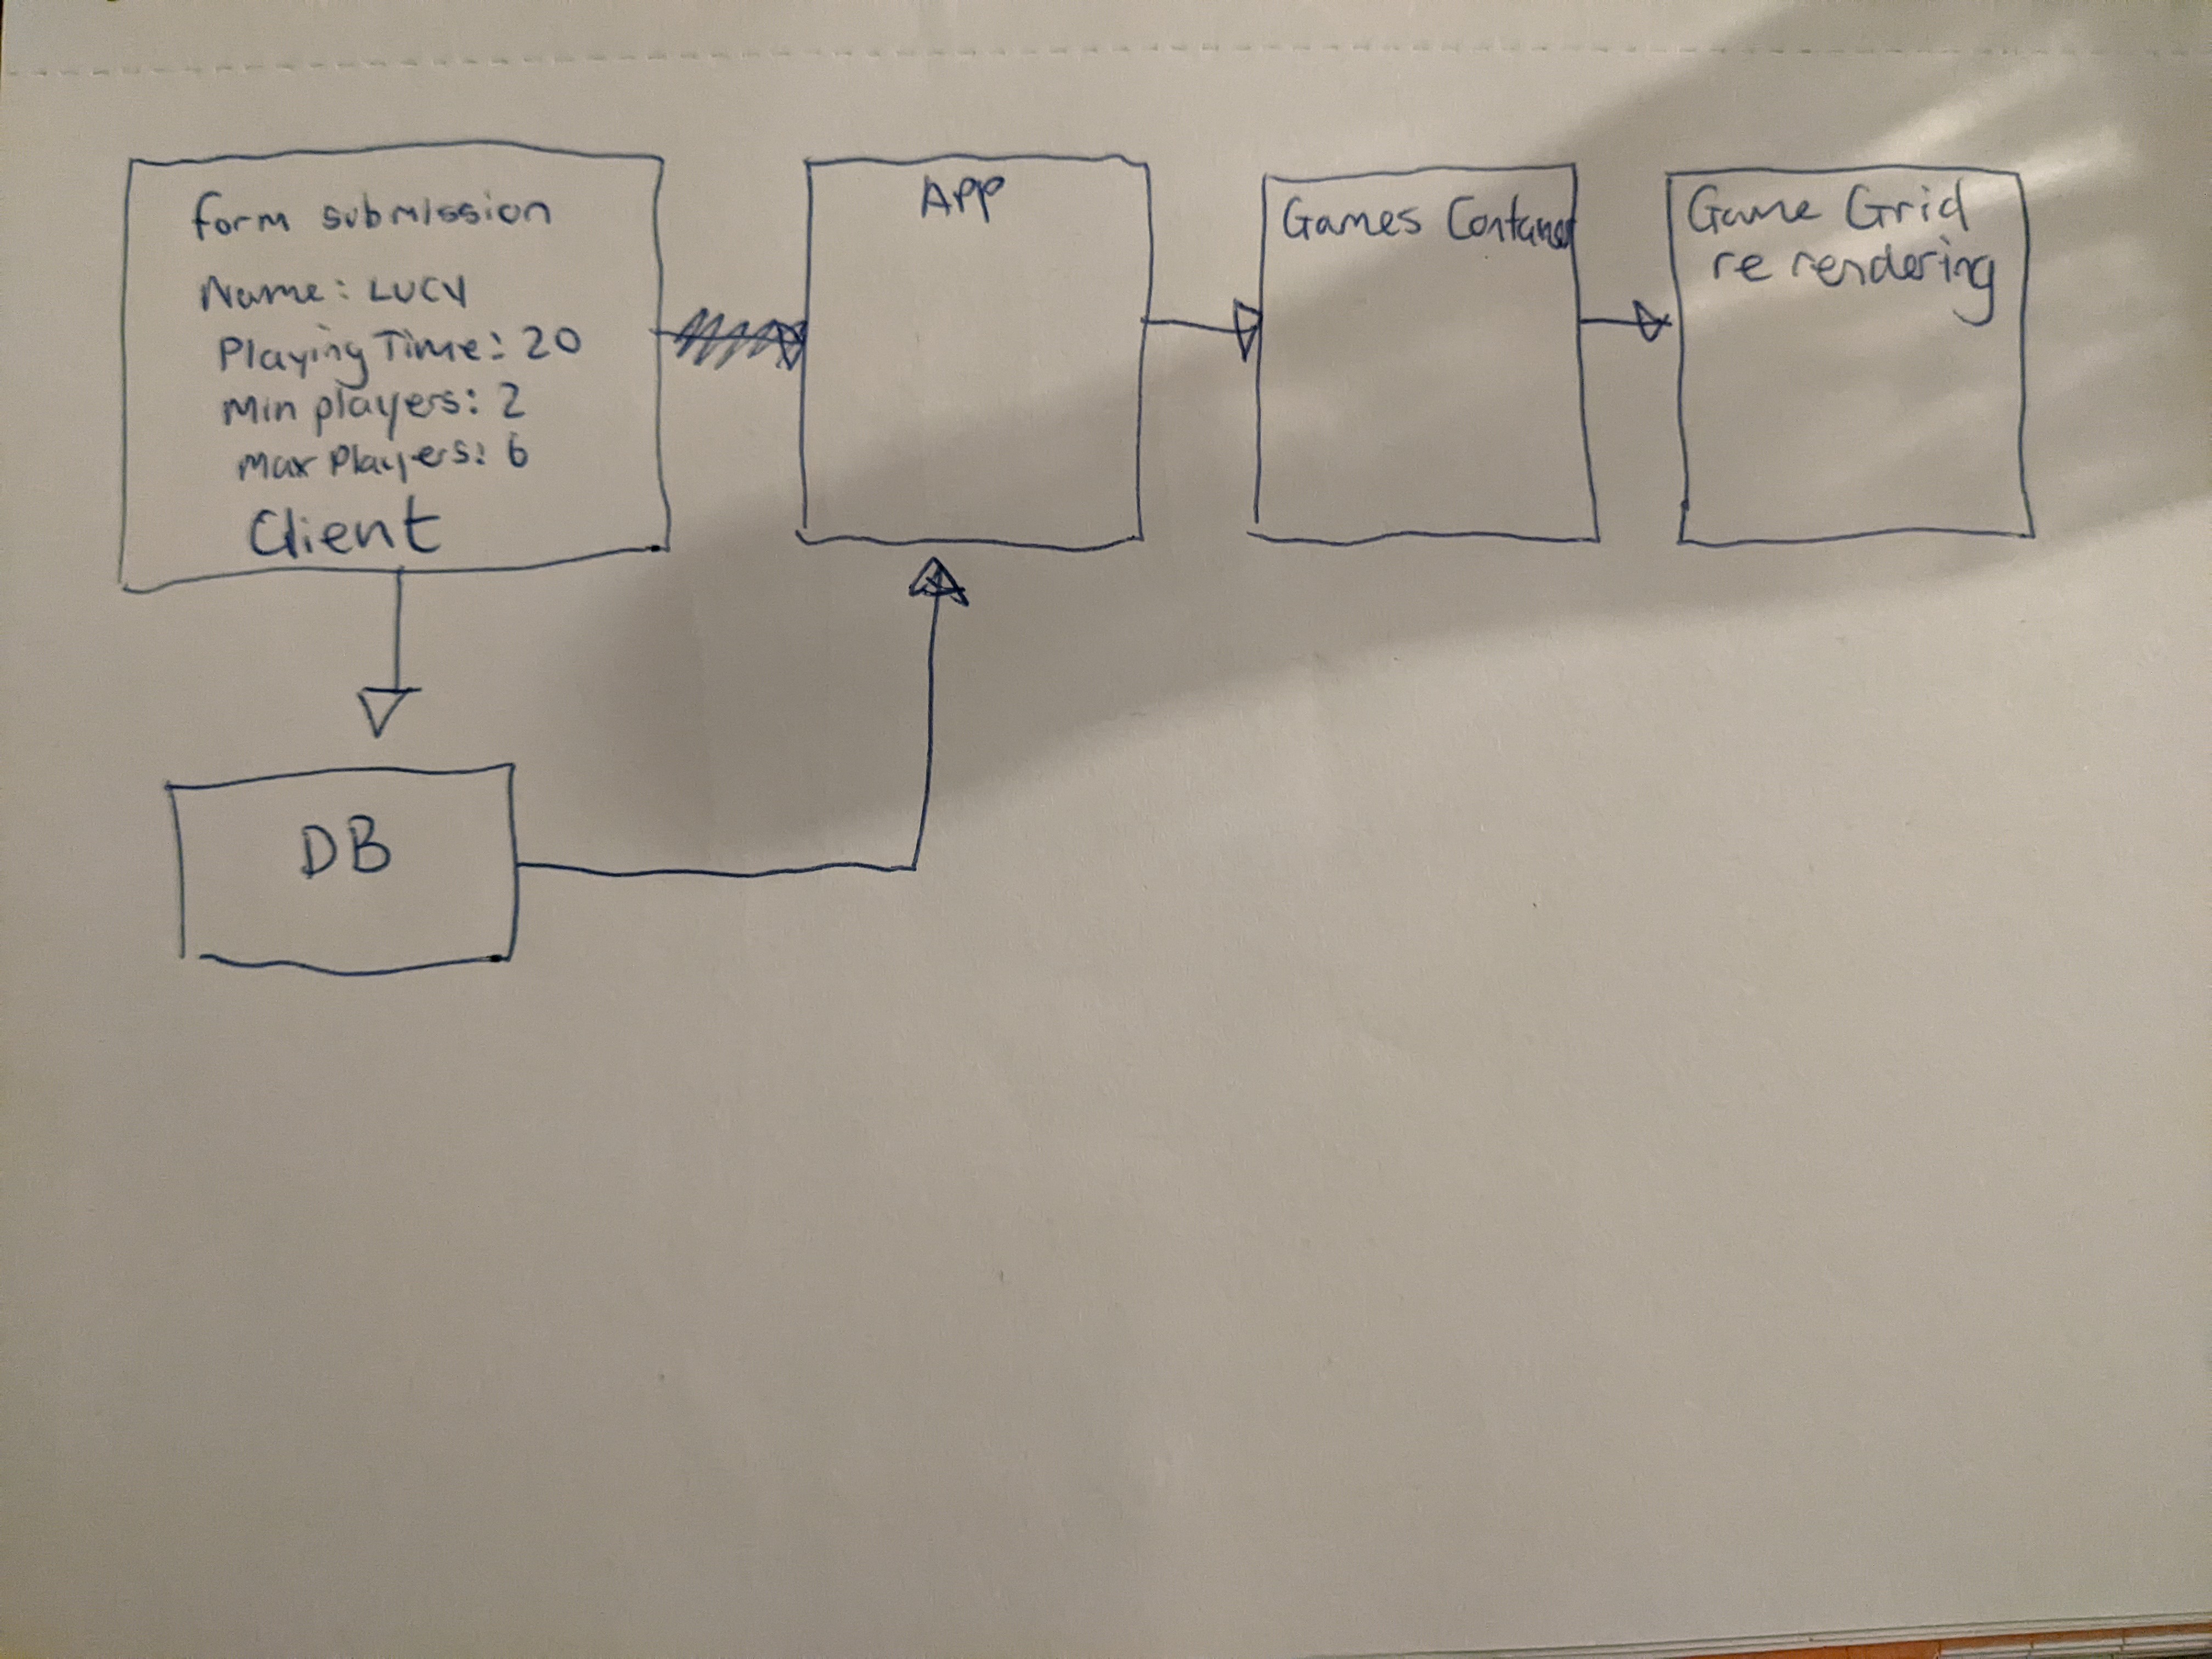 form submission
Name: LUCY
Playing Time: 20
Min players: 2
Max Players: 6
Client
App
Games Container
Game Grid
re rendering
DB